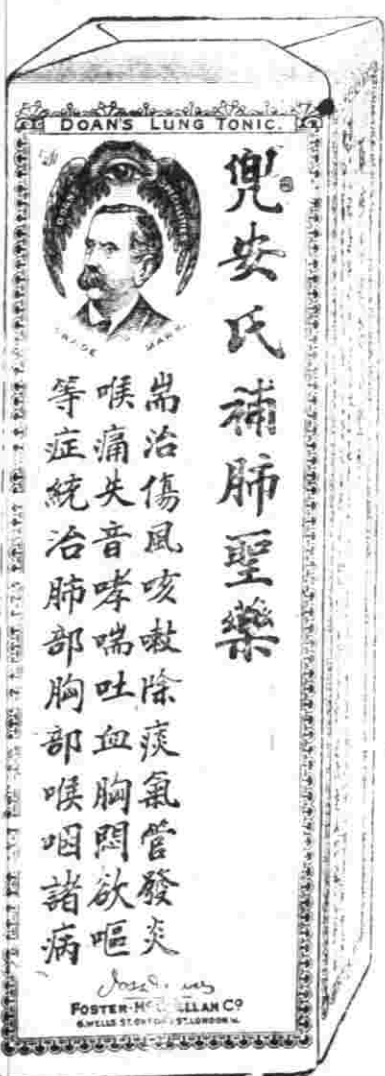 DOAN'S LUNG TONIC.
TRADE MARK.
兜安氏補肺聖藥
耑治傷風咳嗽除痰氣管發炎
喉痛失音哮喘吐血胸悶欲嘔
等症統治肺部胸部喉咽諸病
FOSTER-McCLELLAN Co
8, WELLS ST. OXFORD ST. LONDON W.